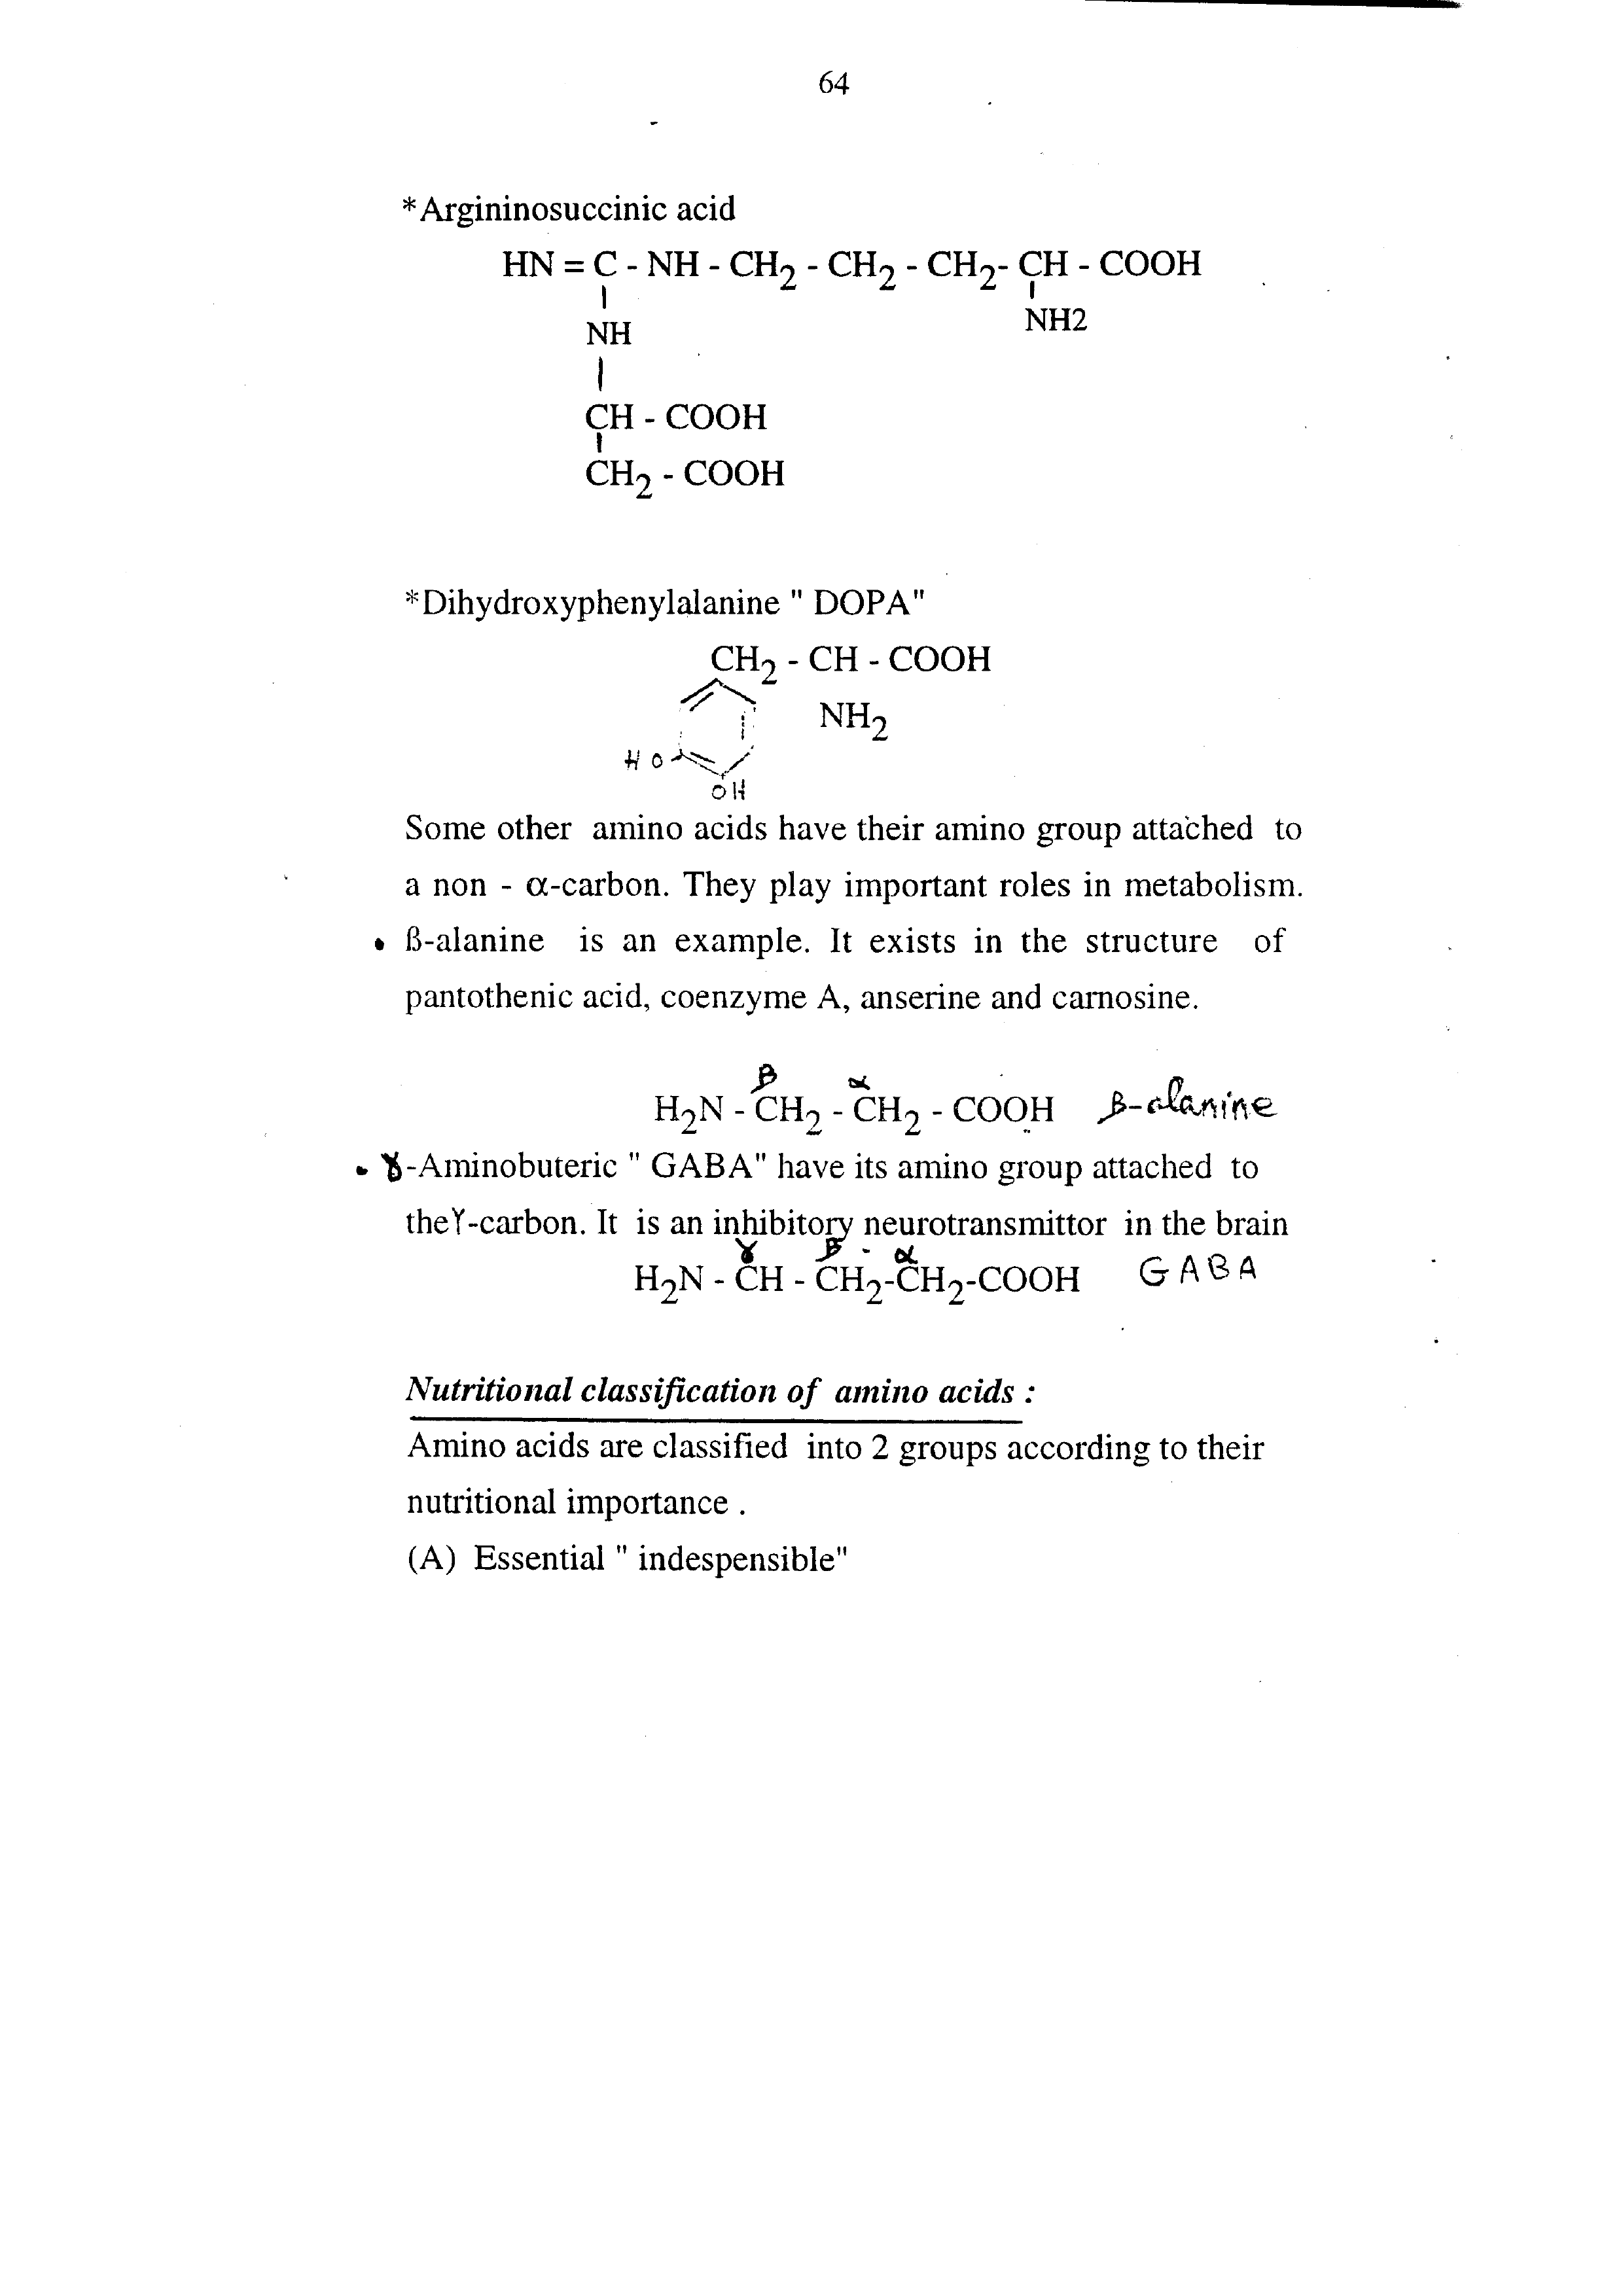 64
*Argininosuccinic acid
HN = C - NH - CH2 - CH2 - CH2- CH - COOH
NH NH2
CH - COOH
CH2 - COOH
*Dihydroxyphenylalanine " DOPA"
CH2 - CH - COOH
NH2
HO
OH
Some other amino acids have their amino group attached to
a non - α-carbon. They play important roles in metabolism.
• ß-alanine is an example. It exists in the structure of
pantothenic acid, coenzyme A, anserine and carnosine.
β α
H2N - CH2 - CH2 - COOH β-alanine
• γ-Aminobuteric " GABA" have its amino group attached to
theγ-carbon. It is an inhibitory neurotransmittor in the brain
γ β α
H2N - CH - CH2-CH2-COOH GABA
Nutritional classification of amino acids :
Amino acids are classified into 2 groups according to their
nutritional importance .
(A) Essential " indespensible"